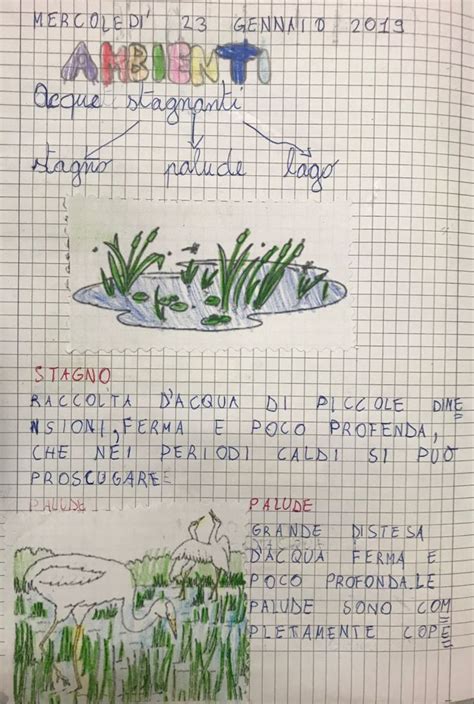 MERCOLEDI' 23 GENNAIO 2019
AMBIENTI
Acque stagnanti
stagno palude lago
STAGNO
RACCOLTA D'ACQUA DI PICCOLE DIME
NSIONI, FERMA E POCO PROFENDA,
CHE NEI PERIODI CALDI SI PUÒ
PROSCUGARE
PALUDE
PALUDE
GRANDE DISTESA
D'ACQUA FERMA E
POCO PROFONDA. LE
PALUDE SONO COM
PLETAMENTE COPE